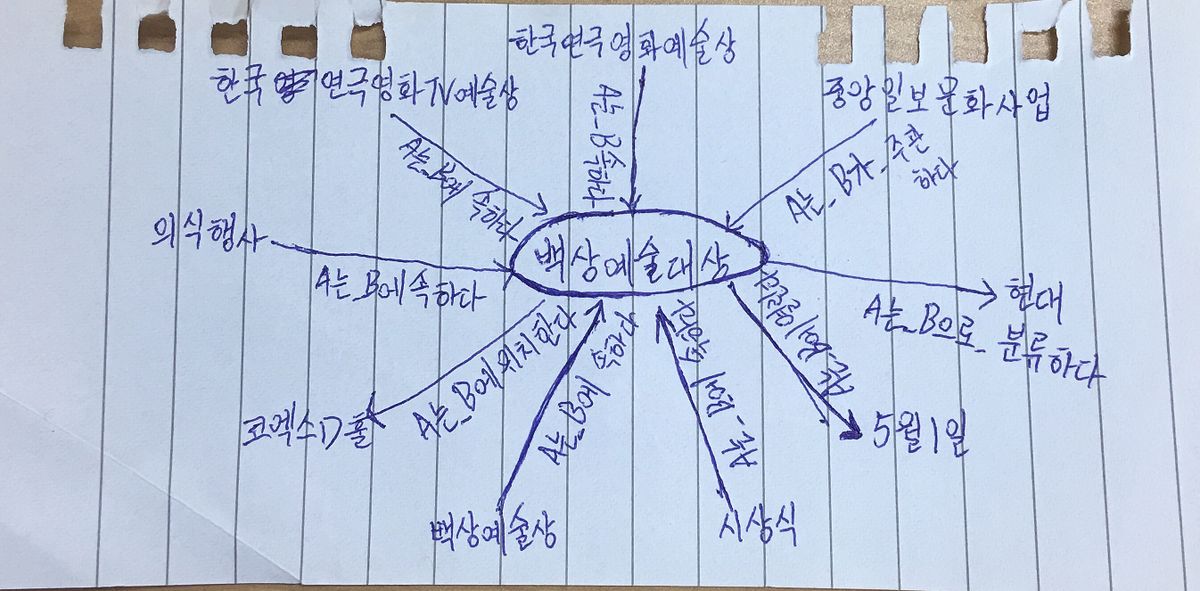 한국연극영화예술상
한국 연극영화TV예술상
중앙일보문화사업
A는_B에 속하다
A는_B속하다
A는_B가_주관
하다
의식행사
백상예술대상
A는_B에속하다
현대
A는_B으로_분류하다
A는_B에위치한다
A는_B에
속하다
코엑스D홀
5월1일
백상예술상
시상식